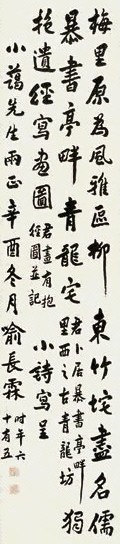 梅里原為風雅區柳東竹垞盡名儒
暴書亭畔青龍宅
君卜居暴書亭畔
里西之古青龍坊
獨
抱遺經寫畫圖
君畫有抱
經圖並記
小詩寫呈
小藹先生兩正辛酉冬月喻長霖
時年六
十有五